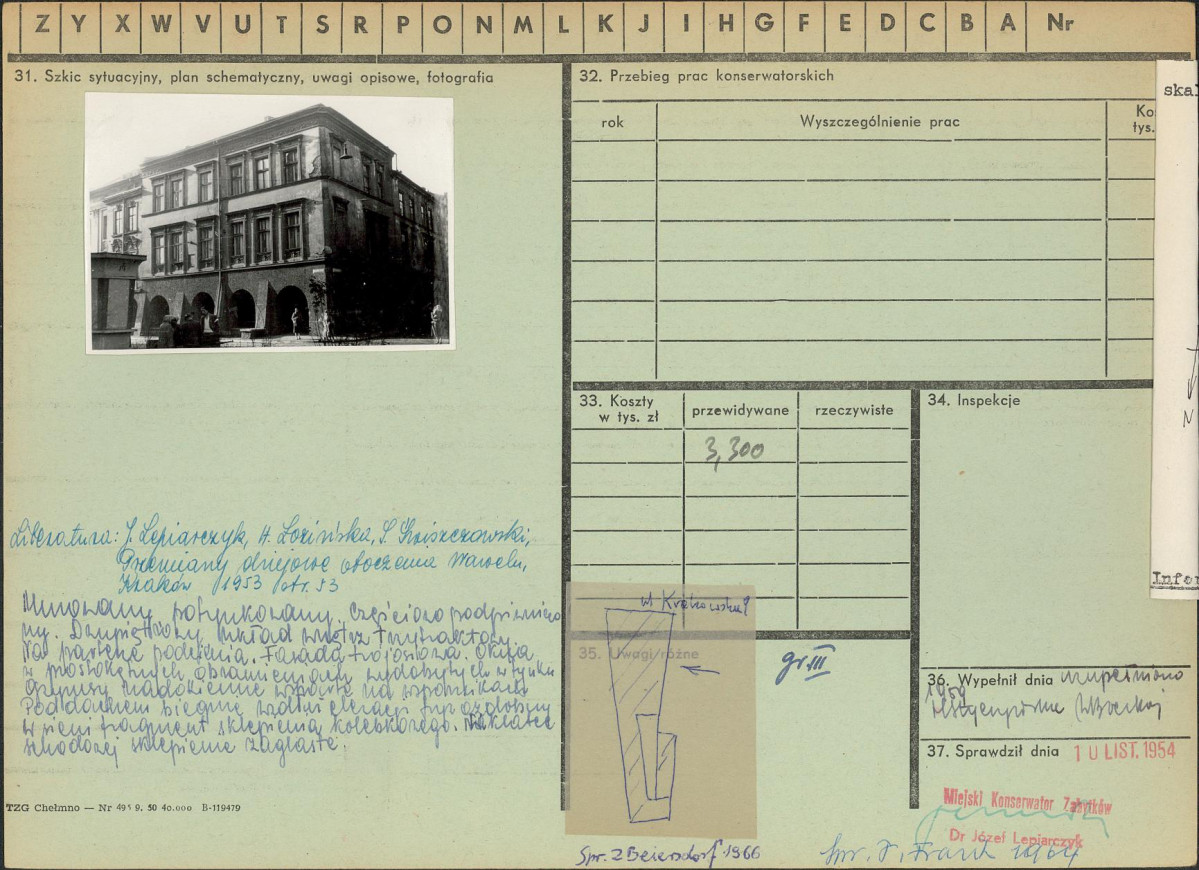 Z Y X W V U T S R P O N M L K J I H G F E D C B A Nr
31. Szkic sytuacyjny, plan schematyczny, uwagi opisowe, fotografia
Literatura: J. Lepiarczyk, H. Łozińska, S. Świszczowski,
Przemiany dziejowe otoczenia Wawelu,
Kraków 1953 str. 53
Murowany, potynkowany. Częściowo podpiwniczo
ny. Dwupiętrowy układ wnętrz trzytraktowy.
Na parterze podcienia. Fasada trójosiowa. Okna
w prostokątnych obramieniach wydobytych w tynku
Gzymsy nadokienne wsparte na wspornikach
Pod dachem biegnie wzdłuż elewacji fryz ozdobny
w sieni fragment sklepienia kolebkowego. Na klatce
schodowej sklepienie żaglaste.
TZG Chełmno — Nr 495 9. 50 40.000 B-119479
32. Przebieg prac konserwatorskich
rok
Wyszczególnienie prac
Ko
tys.
ska
33. Koszty
w tys. zł
przewidywane
rzeczywiste
3,300
34. Inspekcje
Infor
ul Krakowska?
35. Uwagi różne
gr. III
36. Wypełnił dnia uzupełniono
1959
37. Sprawdził dnia 10 LIST. 1954
Miejski Konserwator Zabytków
Dr Józef Lepiarczyk
Spr. Z Beiersdorf 1966
Spr. J. Frank 1964